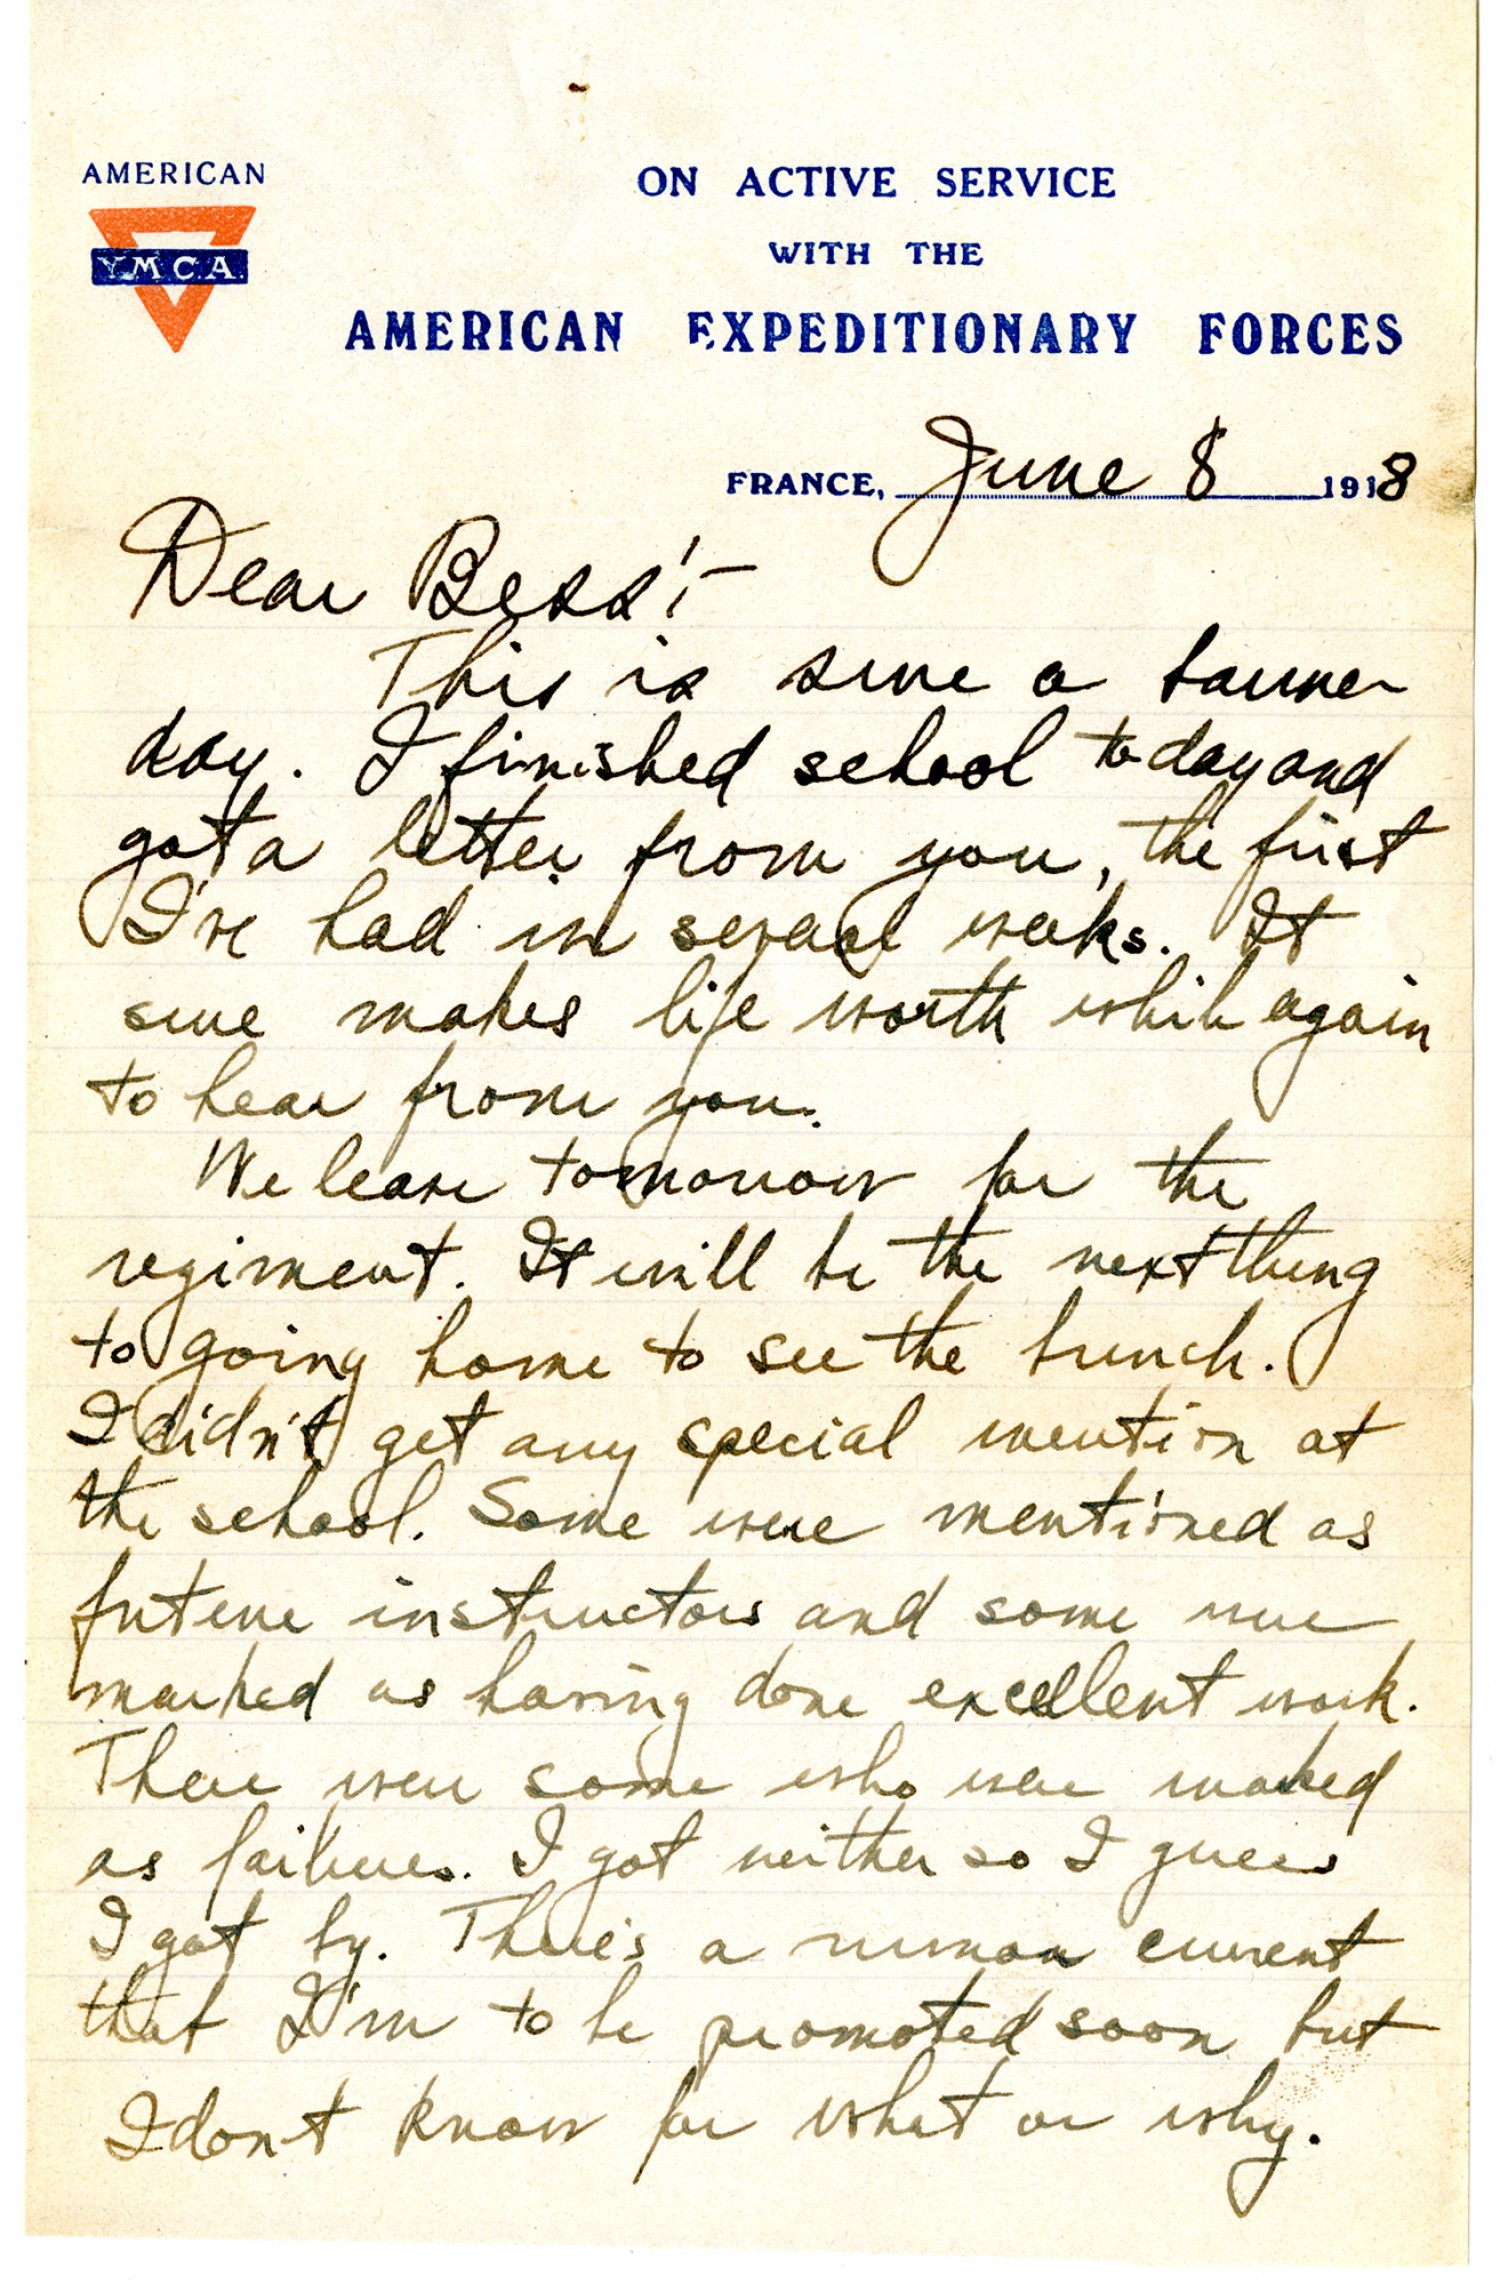 AMERICAN
YMCA
ON ACTIVE SERVICE
WITH THE
AMERICAN EXPEDITIONARY FORCES
FRANCE, June 8 1918
Dear Bess:-
This is sure a banner
day. I finished school today and
got a letter from you, the first
I've had in several weeks. It
sure makes life worth while again
to hear from you.
We leave tomorrow for the
regiment. It will be the next thing
to going home to see the bunch.
I didn't get any special mention at
the school. Some were mentioned as
future instructors and some were
marked as having done excellent work.
There were some who were marked
as failures. I got neither so I guess
I got by. There's a rumor current
that I'm to be promoted soon but
I don't know for what or why.